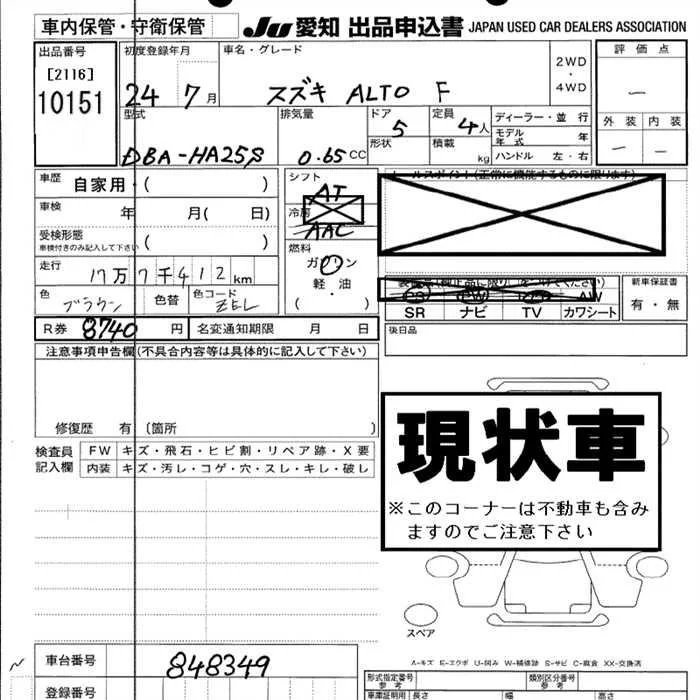 車内保管・守衛保管 JU 愛知 出品申込書 JAPAN USED CAR DEALERS ASSOCIATION
出品番号 初度登録年月 車名・グレード 評価点
[2116] 2WD
10151 24 7月 スズキ ALTO F ・
4WD
型式 排気量 ドア 定員 ディーラー・並行 外装 内装
DBA-HA25S 0.65CC 5 4人 モデル年式 年
形状 積載 kg ハンドル 左・右
車歴 自家用・( ) シフト セールスポイント(正常に機能するものに限ります)
AT
車検 年 月( 日) 冷房
AAC
受検形態 ( )
車検付きのみ記入して下さい
燃料
走行 17万7千412km ガソリン
軽油
色 ブラウン 色替 色コード ZEL ( ・ )
新車保証書
有・無
SR ナビ TV カワシート
R券 8740円 名変通知期限 月 日 後日品
注意事項申告欄(不具合内容等は具体的に記入して下さい)
修復歴 有〔箇所 〕
現状車
※このコーナーは不動車も含み
ますのでご注意下さい
検査員記入欄 FW キズ・飛石・ヒビ割・リペア跡・X要
内装 キズ・汚レ・コゲ・穴・スレ・キレ・破レ
スペア
A-キズ E-エクボ U-凹み W-補修跡 S-サビ C-腐食 XX-交換済
車台番号 848349
登録番号
形式指定番号 参考 類別区分番号 参考
車庫証明用 長さ 幅 高さ